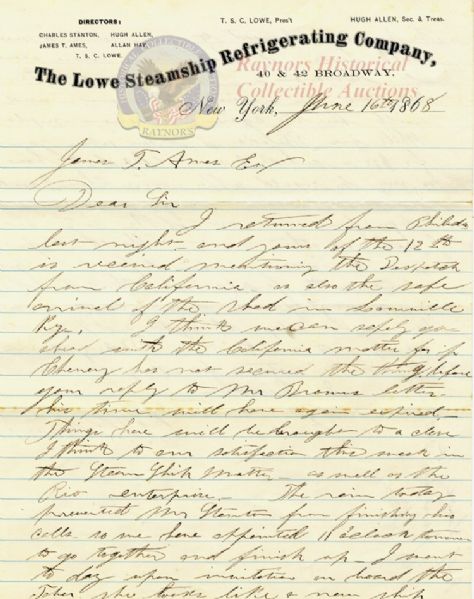 DIRECTORS:
CHARLES STANTON, HUGH ALLEN,
JAMES T. AMES, ALLAN HAY,
T. S. C. LOWE.
T. S. C. LOWE, Pres't
HUGH ALLEN, Sec. & Treas.
The Lowe Steamship Refrigerating Company,
40 & 42 BROADWAY.
Raynors Historical
Collectible Auctions
RAYNOR'S
New York, June 16th 1868
James T. Ames Esq
Dear Sir
I returned from Philda
last night and yours of the 12th
is received mentioning the Despatch
from California as also the safe
arrival of the shad in Louisville
Kye. I think we can safely go
ahead with the California matter for if
Cheney has not secured the before
your reply to Mr letter
his time will have again expired.
Things here will be brought to a close
I think to our satisfaction this week in
the Steam Ship Matter as well as the
Rio enterprise. The rain today
prevented Mr Stanton from finishing his
calls so we have appointed o'clock tomorrow
to go together and finish up I went
to day upon invitation on board the
she looks like a new ship